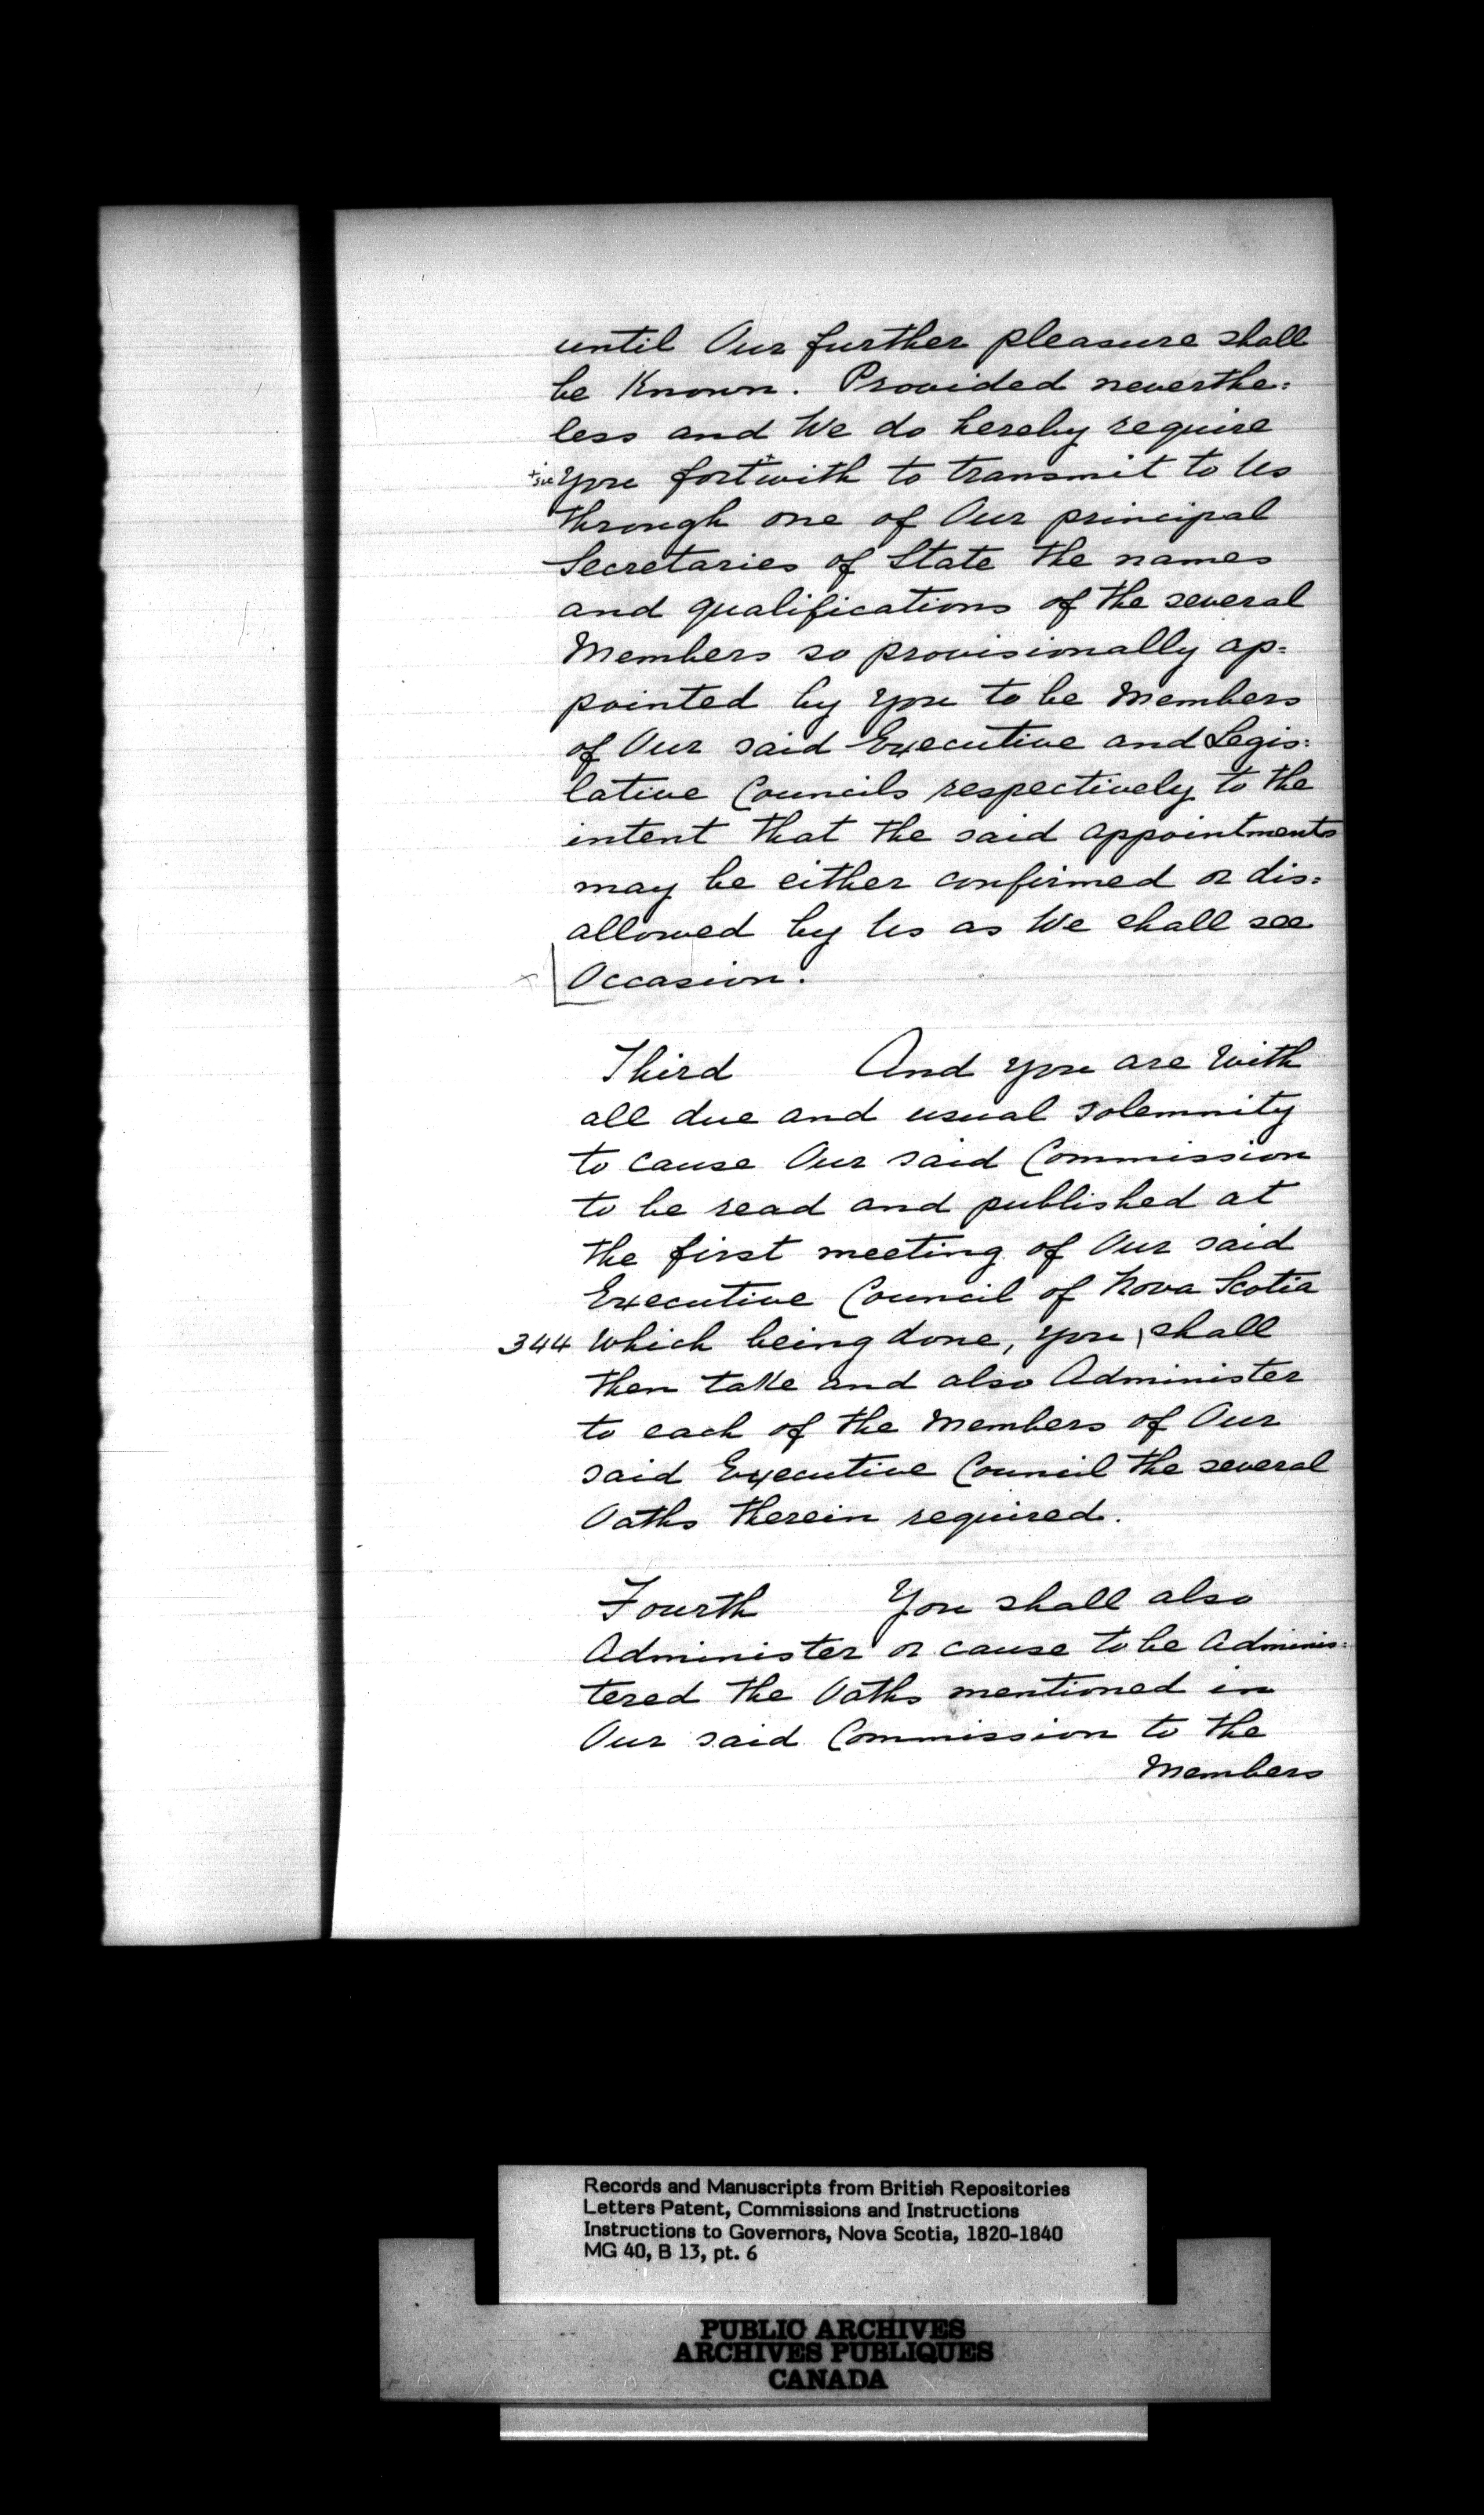 until Our further pleasure shall
be Known. Provided neverthe:
less and We do hereby require
+sic you fort+with to transmit to Us
through one of Our principal
Secretaries of State the names
and qualifications of the several
Members so provisionally ap:
pointed by you to be Members
of Our said Executive and Legis:
lative Councils respectively to the
intent that the said appointments
may be either confirmed or dis:
allowed by Us as We shall see
x Occasion.
Third And you are With
all due and usual solemnity
to cause Our said Commission
to be read and published at
the first meeting of Our said
Executive Council of Nova Scotia
344 Which being done, you \ shall
then take and also Administer
to each of the Members of Our
said Executive Council the several
Oaths therein required.
Fourth You shall also
Administer or cause to be Adminis:
tered the Oaths mentioned in
Our said Commission to the
Members
Records and Manuscripts from British Repositories
Letters Patent, Commissions and Instructions
Instructions to Governors, Nova Scotia, 1820-1840
MG 40, B 13, pt. 6
PUBLIC ARCHIVES
ARCHIVES PUBLIQUES
CANADA